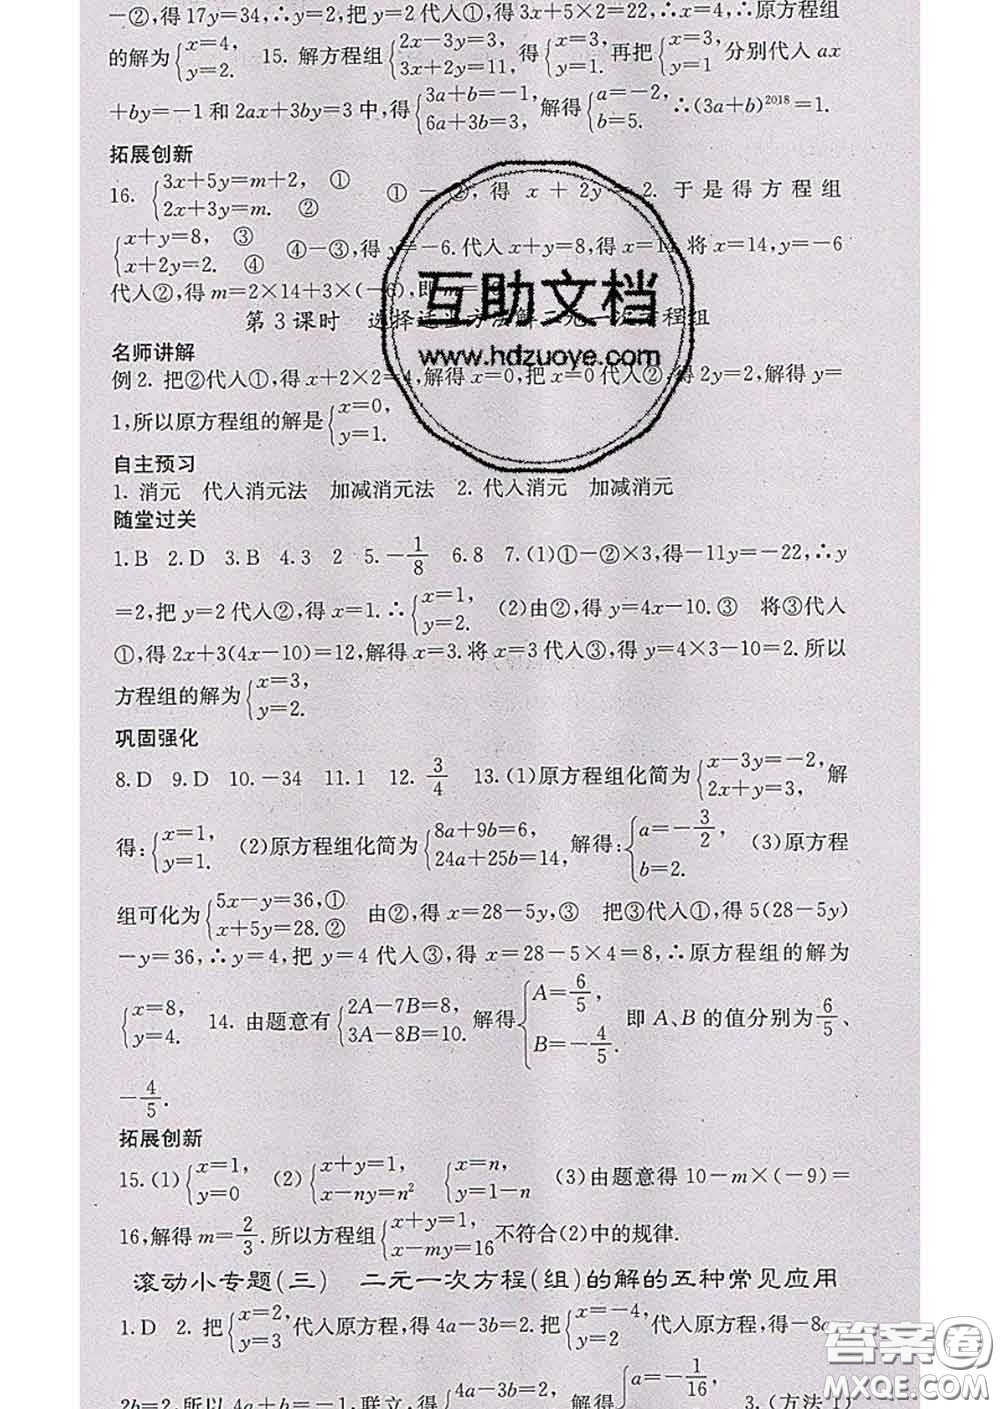 -②,得17y=34,∴y=2,把y=2代入①,得3x+5×2=22,∴x=4,∴原方程组
的解为{x=4, y=2. 15. 解方程组{2x-3y=3, 3x+2y=11, 得{x=3, y=1. 再把{x=3, y=1 分别代入ax
+by=-1和2ax+3by=3中,得{3a+b=-1, 6a+3b=3, 解得{a=-2, b=5. ∴(3a+b)^2018=1.
拓展创新
16. {3x+5y=m+2, ① 2x+3y=m. ② ①-②,得x+2y=2. 于是得方程组
{x+y=8, ③ x+2y=2. ④ ④-③,得y=-6.代入x+y=8,得x=14.将x=14,y=-6
代入②,得m=2×14+3×(-6),即m=
第3课时 选择适当方法解二元一次方程组
名师讲解
例2. 把②代入①,得x+2×2=4,解得x=0,把x=0代入②,得2y=2,解得y=
1,所以原方程组的解是{x=0, y=1.
自主预习
1. 消元 代入消元法 加减消元法 2. 代入消元 加减消元
随堂过关
1.B 2.D 3.B 4.3 2 5.-1/8 6.8 7.(1)①-②×3,得-11y=-22,∴y
=2,把y=2代入②,得x=1.∴{x=1, y=2. (2)由②,得y=4x-10.③ 将③代入
①,得2x+3(4x-10)=12,解得x=3.将x=3代入③,得y=4×3-10=2.所以
方程组的解为{x=3, y=2.
巩固强化
8.D 9.D 10.-34 11.1 12. 3/4 13.(1)原方程组化简为{x-3y=-2, 2x+y=3, 解
得:{x=1, y=1. (2)原方程组化简为{8a+9b=6, 24a+25b=14, 解得:{a=-3/2, b=2. (3)原方程
组可化为{5x-y=36,① x+5y=28.② 由②,得x=28-5y,③ 把③代入①,得5(28-5y)
-y=36,∴y=4,把y=4代入③,得x=28-5×4=8,∴原方程组的解为
{x=8, y=4. 14. 由题意有{2A-7B=8, 3A-8B=10. 解得{A=6/5, B=-4/5. 即A、B的值分别为6/5、
-4/5.
拓展创新
15.(1){x=1, y=0 (2){x+y=1, x-ny=n² {x=n, y=1-n (3)由题意得10-m×(-9)=
16,解得m=2/3.所以方程组{x+y=1, x-my=16 不符合(2)中的规律.
滚动小专题(三) 二元一次方程(组)的解的五种常见应用
1.D 2. 把{x=2, y=3 代入原方程,得4a-3b=2.把{x=-4, y=2 代入原方程,得-8a
2b=2,所以4a+b=1,联立,得{4a-3b=2, 解得{a=-1/16 3.(方法1)
互助文档
www.hdzuoye.com
答案圈
MXQE.COM